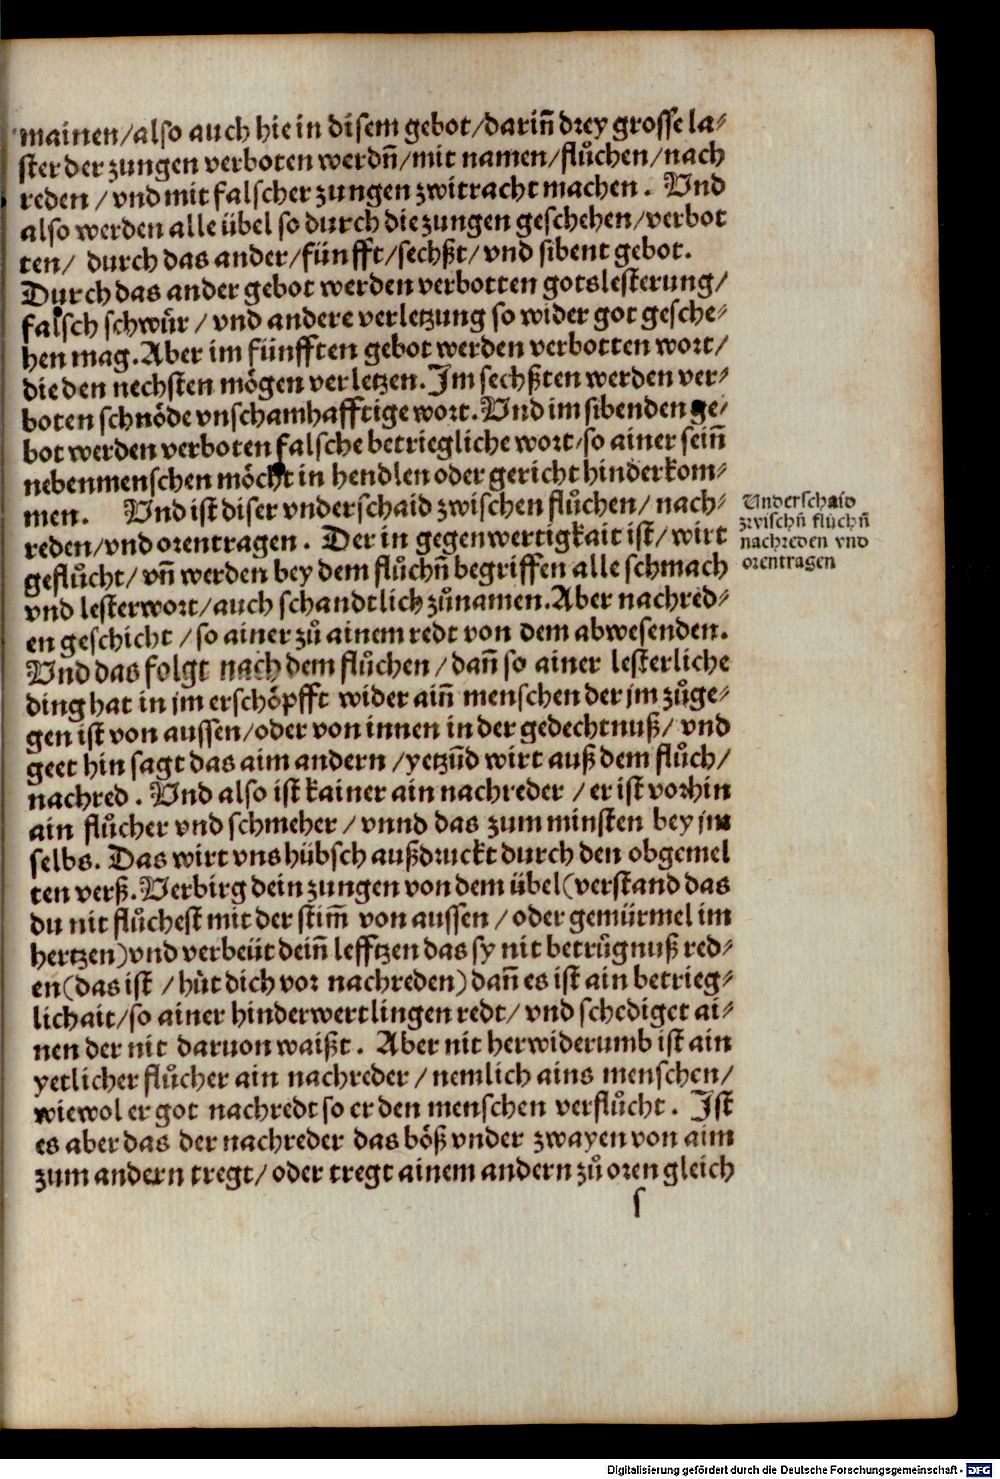 mainen/also auch hie in disem gebot/darin̄ drey grosse la⸗
ster der zungen verboten werdn̄/mit namen/flůchen/nach
reden/vnd mit falscher zungen zwitracht machen. Vnd
also werden alle übel so durch die zungen geschehen/verbot
ten/ durch das ander/fünfft/sechßt/vnd sibent gebot.
Durch das ander gebot werden verbotten gotslesterung/
falsch schwůr/vnd andere verletzung so wider got gesche⸗
hen mag. Aber im fünfften gebot werden verbotten wort/
die den nechsten mögen verletzen. Im sechßten werden ver⸗
boten schnöde vnschamhafftige wort. Vnd im sibenden ge⸗
bot werden verboten falsche betriegliche wort/so ainer sein̄
nebenmenschen möcht in hendlen oder gericht hinderkom⸗
men. Vnd ist diser vnderschaid zwischen flůchen/nach⸗
reden/vnd orentragen. Der in gegenwertigkait ist/wirt
geflůcht/vn̄ werden bey dem flůchn̄ begriffen alle schmach
vnd lesterwort/auch schandtlich zůnamen. Aber nachred⸗
en geschicht/so ainer zů ainem redt von dem abwesenden.
Vnd das folgt nach dem flůchen/dan̄ so ainer lesterliche
ding hat in jm erschöpfft wider ain̄ menschen der jm zůge⸗
gen ist von aussen/oder von innen in der gedechtnuß/vnd
geet hin sagt das aim andern/yetzūd wirt auß dem flůch/
nachred. Vnd also ist kainer ain nachreder/er ist vorhin
ain flůcher vnd schmeher/vnnd das zum minsten bey jm
selbs. Das wirt vns hübsch außdruckt durch den obgemel
ten verß. Verbirg dein zungen von dem übel(verstand das
du nit flůchest mit der stim̄ von aussen/oder gemürmel im
hertzen)vnd verbeüt dein̄ lefftzen das sy nit betrůgnuß red⸗
en(das ist/hůt dich vor nachreden)dan̄ es ist ain betrieg⸗
lichait/so ainer hinderwertlingen redt/vnd schediget ai⸗
nen der nit daruon waißt. Aber nit herwiderumb ist ain
yetlicher flůcher ain nachreder/nemlich ains menschen/
wiewol er got nachredt so er den menschen verflůcht. Ist
es aber das der nachreder das böß vnder zwayen von aim
zum andern tregt/oder tregt ainem andern zů oren gleich
s
Vnderschaid
zwischn̄ flůchn̄
nachreden vnd
orentragen
Digitalisierung gefördert durch die Deutsche Forschungsgemeinschaft - DFG